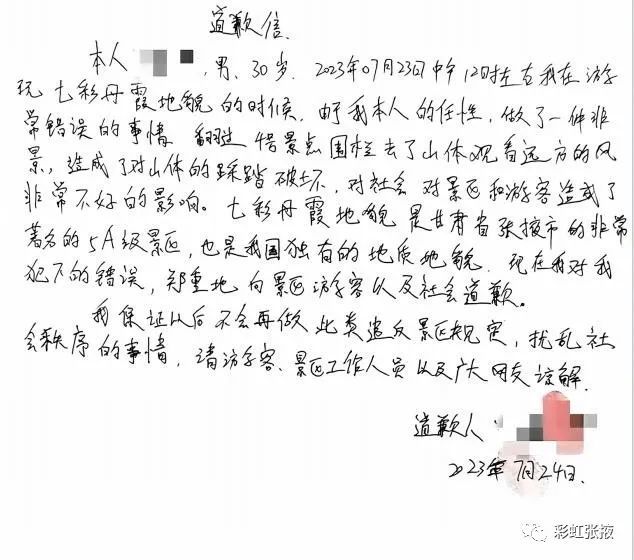 道歉信
本人 ,男,30岁. 2023年07月23日中午12时左右我在游
玩七彩丹霞地貌的时候,由于我本人的任性,做了一件非
常错误的事情 翻过 景点围栏去了山体观看远方的风
景,造成了对山体的踩踏破坏,对社会对景区和游客造成了
非常不好的影响。七彩丹霞地貌是甘肃省张掖市的非常
著名的5A级景区,也是我国独有的地质地貌.现在我对我
犯下的错误,郑重地向景区游客以及社会道歉。
我保证以后不会再做此类违反景区规定,扰乱社
会秩序的事情,请游客、景区工作人员以及广大网友谅解.
道歉人:
2023年7月24日.
彩虹张掖